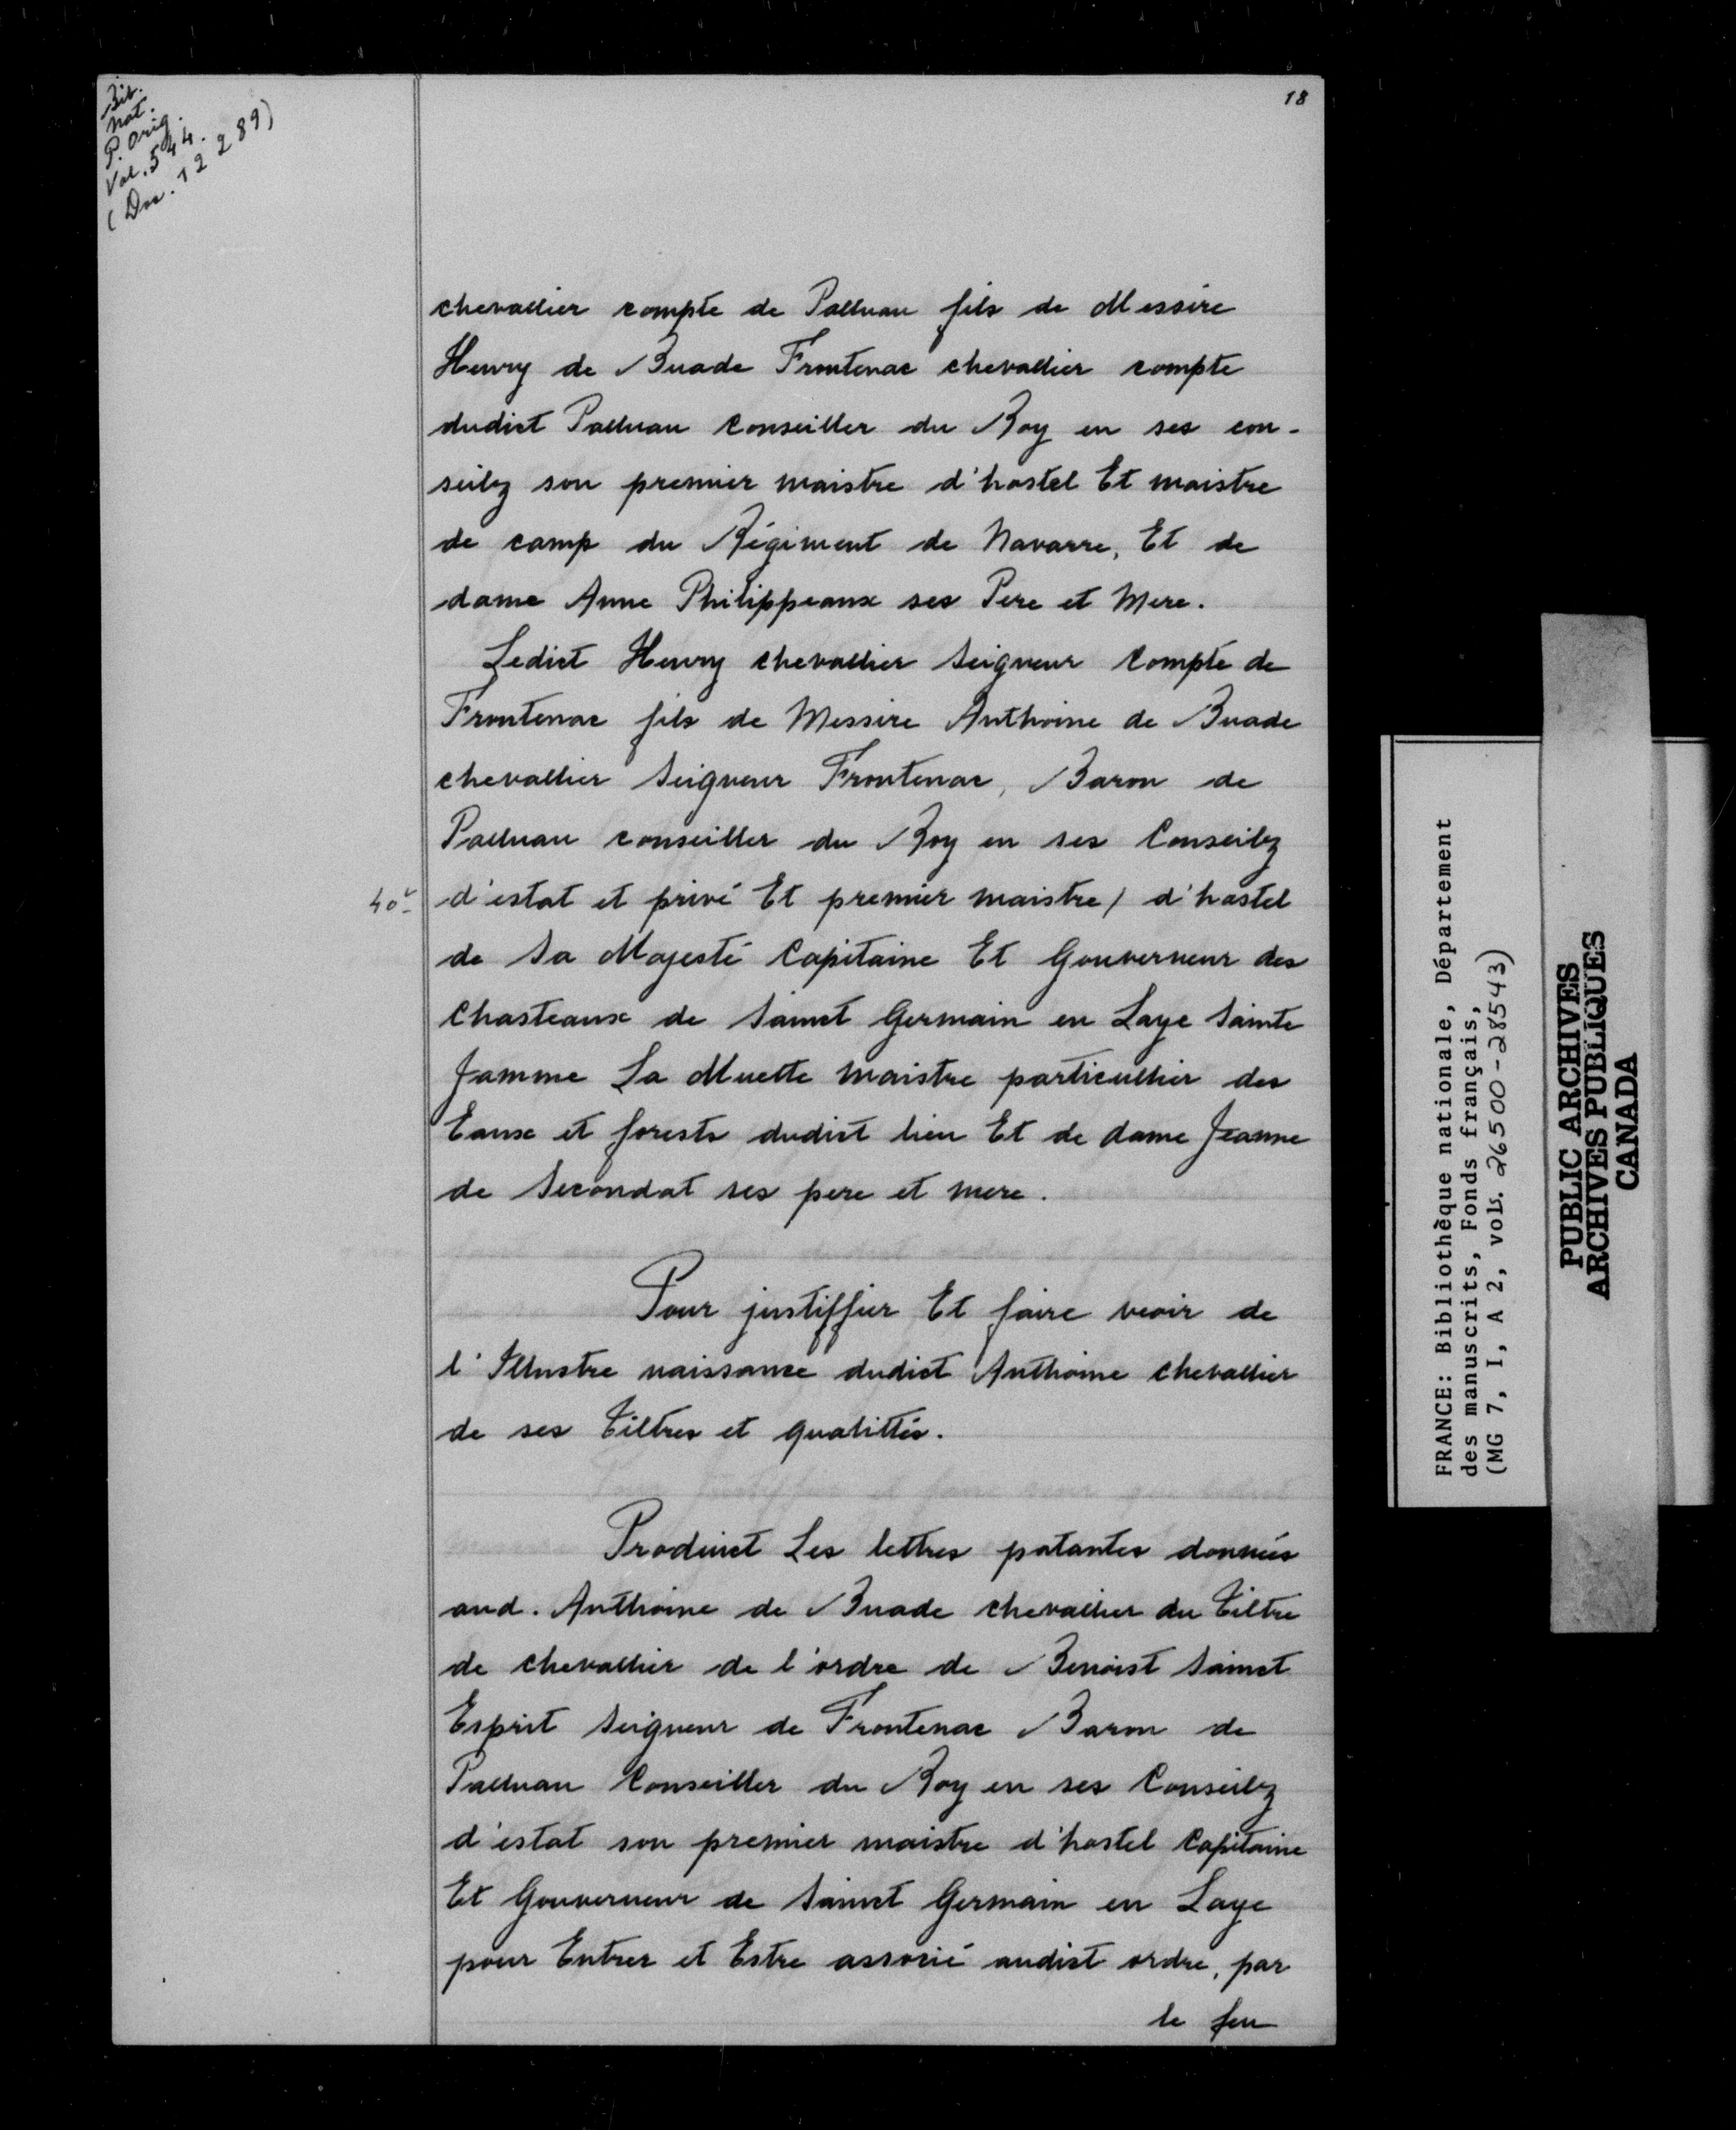 Bib.
Nat.
P. Orig.
Vol. 544.
(Dos. 12289)
18
chevallier compte de Palluau fils de Messire
Henry de Buade Frontenac chevallier compte
dudict Palluau Conseiller du Roy en ses con-
seilz son premier maistre d'hostel Et maistre
de camp du Régiment de Navarre, Et de
dame Anne Philippeaux ses Pere et Mere.
Ledict Henry chevallier Seigneur Compte de
Frontenac fils de Messire Anthoine de Buade
chevallier Seigneur Frontenac, Baron de
Palluau conseiller du Roy en ses Conseilz
40v
d'estat et privé Et premier maistre / d'hostel
de Sa Majesté Capitaine Et Gouverneur des
Chasteaux de Sainct Germain en Laye Sainte
Jamme La Muette Maistre particullier des
Eaux et forests dudict lieu Et de dame Jeanne
de Secondat ses pere et mere.
Pour justiffier Et faire veoir de
l'Illustre naissance dudict Anthoine chevallier
de ses Tiltres et qualittés.
Produict Les lettres patantes données
aud. Anthoine de Buade chevallier du Tiltre
de chevallier de l'ordre de Benoist Sainct
Esprit Seigneur de Frontenac Baron de
Palluau Conseiller du Roy en ses Conseilz
d'estat son premier maistre d'hostel Capitaine
Et Gouverneur de Sainct Germain en Laye
pour Entrer et Estre associé audict ordre, par
le feu
FRANCE: Bibliothèque nationale, Département
des manuscrits, Fonds français,
(MG 7, I, A 2, vols. 26500-28543)
PUBLIC ARCHIVES
ARCHIVES PUBLIQUES
CANADA